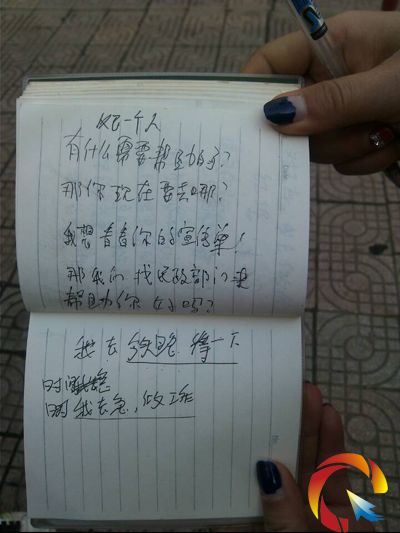 一个人
有什么需要帮助的?
那你现在要去哪?
我想看看你的宣传单!
那我们找民政部门来
帮助你好吗?
我去 等一下
时间
我去 工作